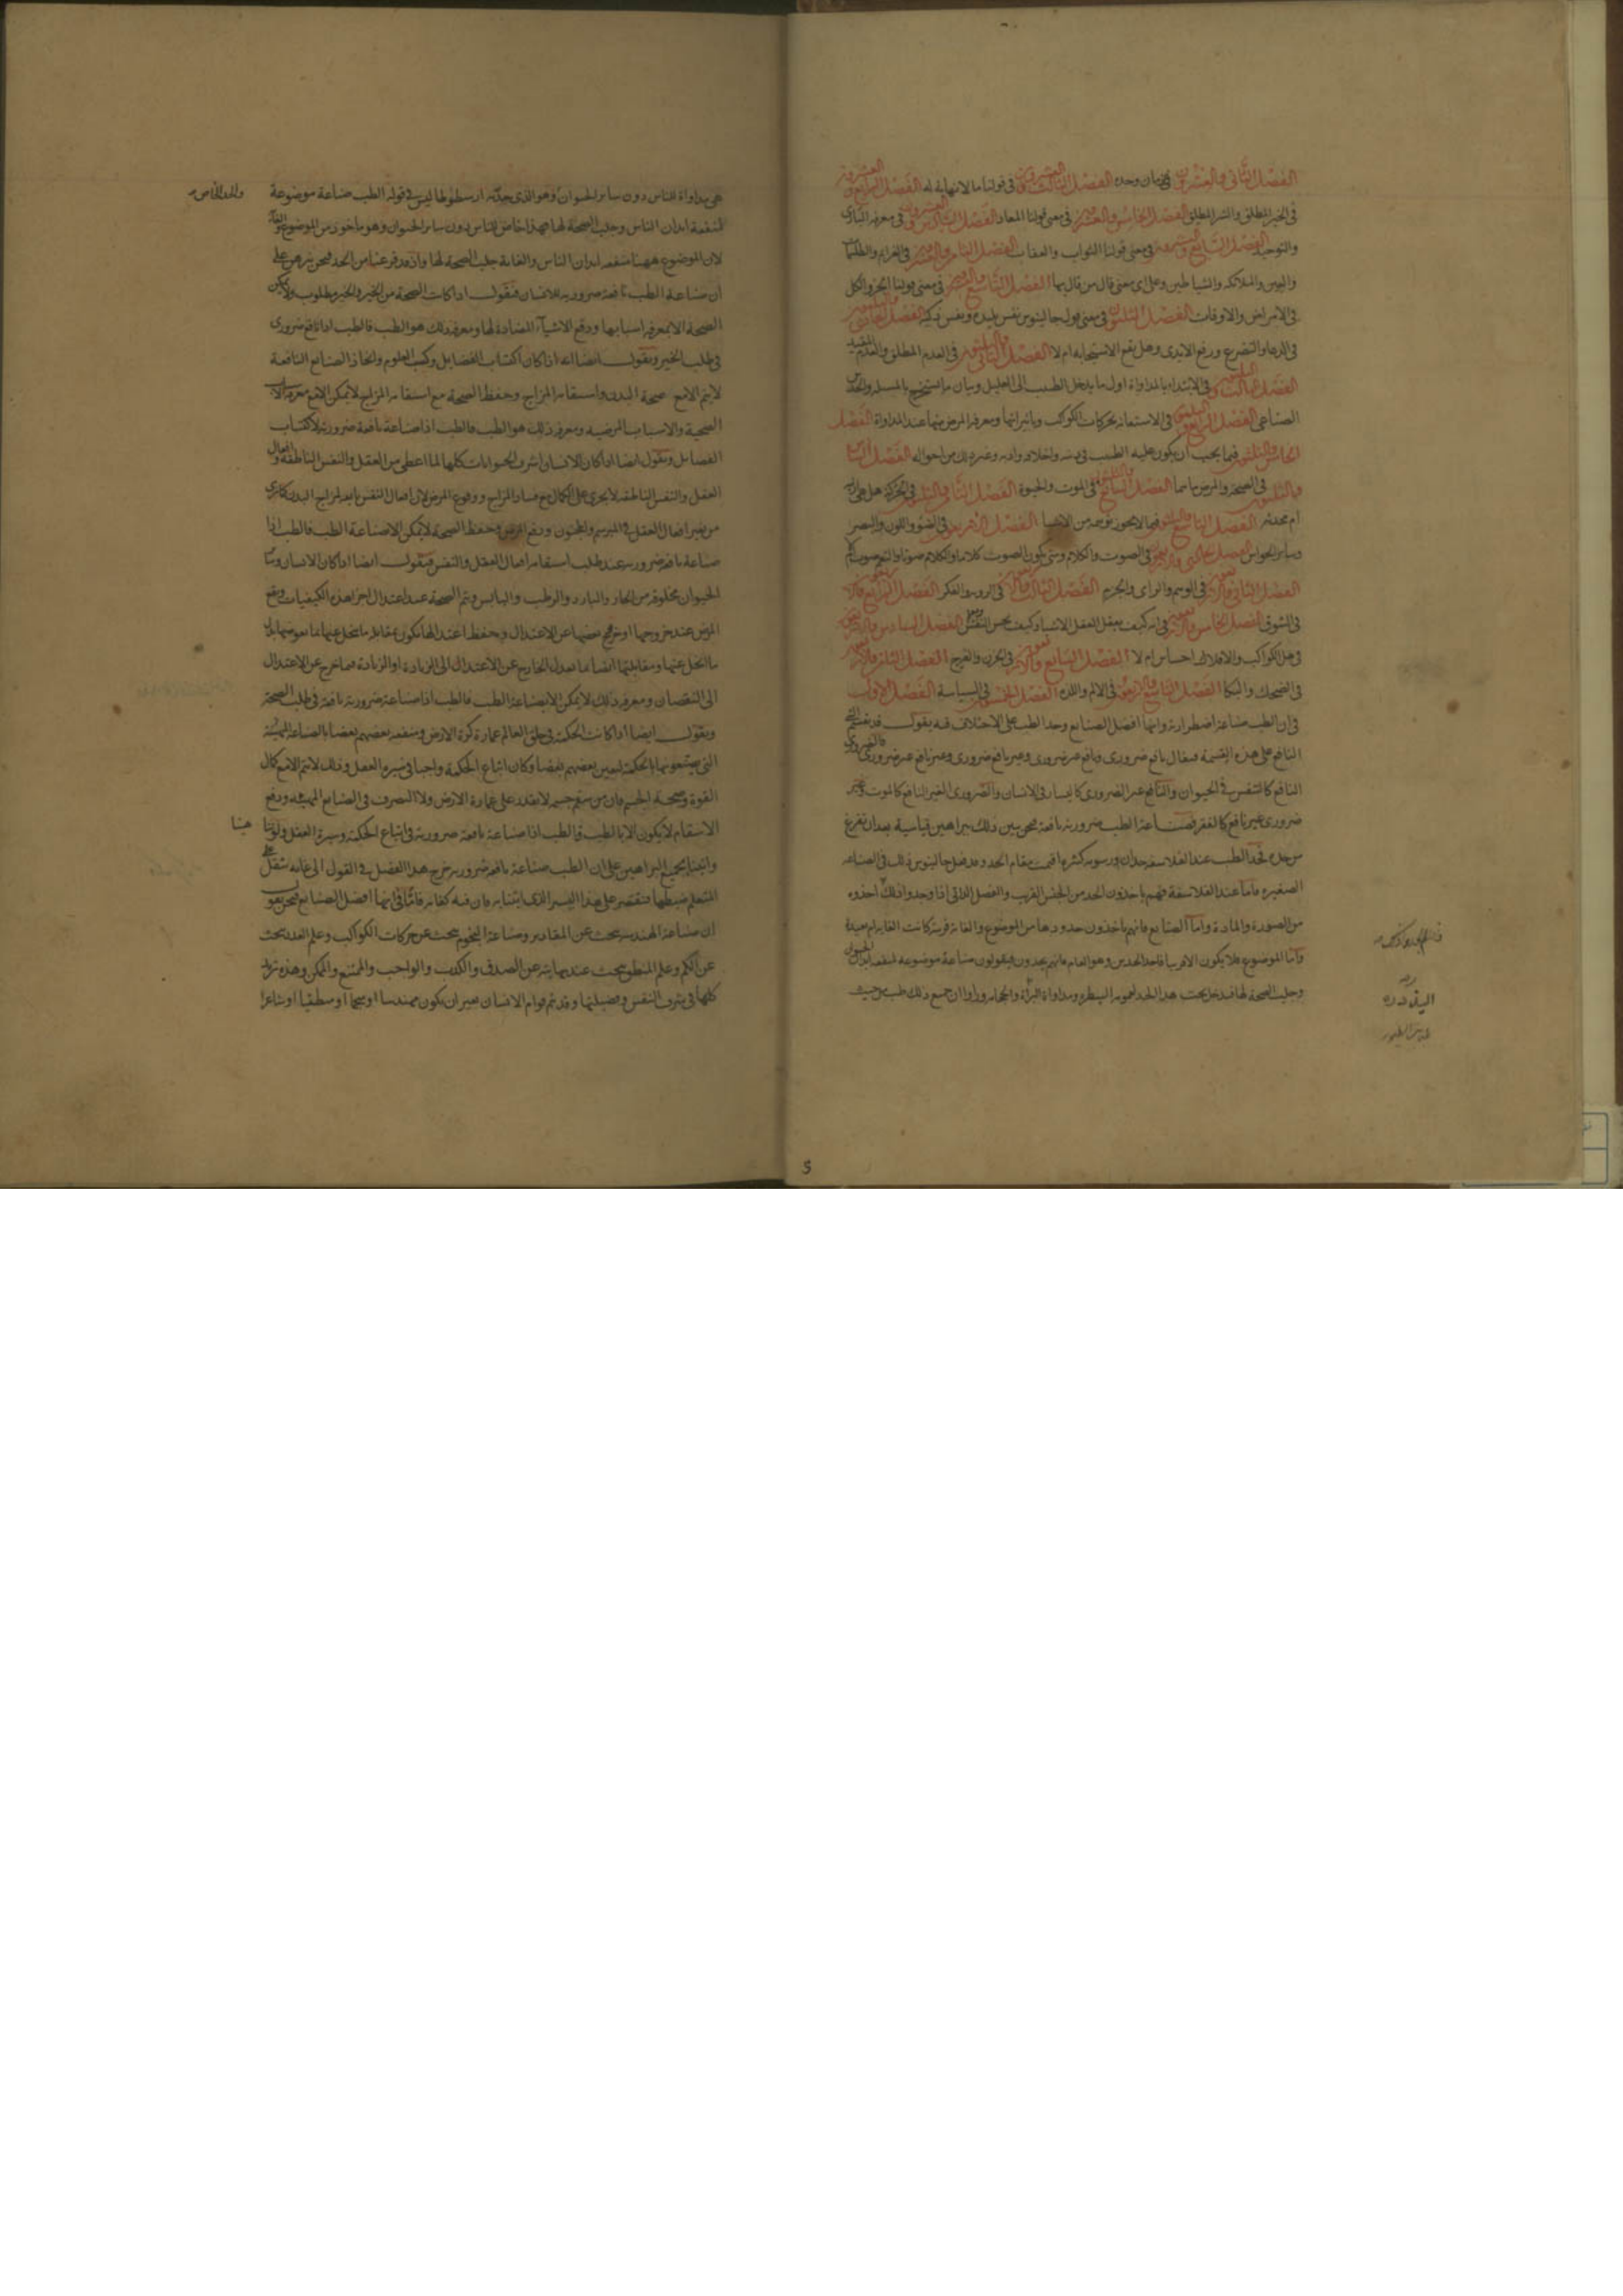 الفصل الثاني والعشرون في زمان وحده الفصل الثالث والعشرون في قولنا ما لا نهاية له الفصل الرابع والعشرون
في الخير المطلق والشر المطلق الفصل الخامس والعشرون في معنى قولنا المعاد الفصل السادس والعشرون في معرفة الباري
والتوحيد الفصل السابع والعشرون في معنى قولنا الثواب والعقاب الفصل الثامن والعشرون في العزايم والطلسمات
والجن والملائكة والشياطين وعلى اي معنى قال من قال بها الفصل التاسع والعشرون في معنى قولنا الجزو والكل
في الامراض والاوقات الفصل الثلثون في معنى قول جالينوس نفس بليده ونفس ذكيه الفصل الحادي والثلثون
في الدعا والتضرع ورفع الايدي وهل يقع الاستجابه ام لا الفصل الثاني والثلثون في العدم المطلق والعدم المقيد
الفصل الثالث والثلثون في الابتداء بالمداواة اول ما يدخل الطبيب الى العليل وبيان ما يستخرج بالمسله والحدس
الصناعي الفصل الرابع والثلثون في الاستعانة بحركات الكواكب وتاثيراتها ومعرفة المرض منها عند المداواة الفصل
الخامس والثلثون فيما يجب ان يكون عليه الطبيب في دينه واخلاقه وادبه وغير ذلك من احواله الفصل السادس
والثلثون في الصحة والمرض ما هما الفصل السابع والثلثون في الموت والحيوة الفصل الثامن والثلثون في الحركة هل هي ازلية
ام محدثه الفصل التاسع والثلثون فيما لا يجوز توهمه من الاشيا الفصل الاربعون في الضو واللون والبصر
وساير الحواس الفصل الحادي والاربعون في الصوت والكلام ومتى يكون الصوت كلاما والكلام صوتا
الفصل الثاني والاربعون في الوهم والراي والحزم الفصل الثالث والاربعون في الروية والفكر الفصل الرابع والاربعون
في الشوق الفصل الخامس والاربعون في انه كيف يعقل العقل الاشيا وكيف يحس النفس الفصل السادس والاربعون
في هل للكواكب والافلاك احساس ام لا الفصل السابع والاربعون في الحزن والفرح الفصل الثامن والاربعون
في الضحك والبكا الفصل التاسع والاربعون في الالم واللذه الفصل الخمسون في السياسة الفصل الاول
في ان الطب صناعة اضطرارية وانها افضل الصنايع وحد الطب على الاختلاف فيه نقول قد يقسم
النافع على هذه القسمة فيقال نافع ضروري ونافع غير ضروري وغير نافع ضروري وغير نافع غير ضروري فالضروري
النافع كالتنفس في الحيوان والنافع غير الضروري كاليسار في الانسان والضروري الغير النافع كالموت وغير
ضروري غير نافع كالفقر فصناعة الطب ضرورية نافعة فنحن نبين ذلك ببراهين قياسية بعد ان نفرغ
من حده فحد الطب عند الفلاسفة حدان ورسوم كثيرة اقيمت مقام الحد وقد فعل جالينوس ذلك في الصناعة
الصغيره فاما عند الفلاسفة فهم ياخذون الحد من الجنس القريب والفصل الذاتي اذا وجدوا ذلك اخذوه
من الصورة والمادة واما الصنايع فانهم ياخذون حدودها من الموضوع والغاية قريبة كانت الغاية ام بعيدة
واما الموضوع فلا يكون الا قريبا فاحد الحدين وهو العام فانهم يحدون فيقولون صناعة موضوعة لمنفعة ابدان الحيوان
وجلب الصحة لها فيدخل تحت هذا الحد لعمومه البيطرة ومداواة البزاة
5
هي مداواة للناس دون ساير الحيوان وهو الذي حدّ به ارسطوطاليس في قوله الطب صناعة موضوعة
لمنفعة ابدان الناس وجلب الصحة لها فهذا خاص للناس دون ساير الحيوان وهو ماخوذ من الموضوع والغاية
لان الموضوع ههنا منفعة ابدان الناس والغاية جلب الصحة لها واذ قد فرغنا من الحد فنحن نبرهن على
ان صناعة الطب نافعة ضرورية للانسان فنقول اذا كانت الصحة من الخير والخير مطلوب ولا يمكن
الصحة الا بمعرفة اسبابها ودفع الاشياء المضادة لها ومعرفة ذلك هو الطب فالطب اذا نافع ضروري
في طلب الخير ونقول ايضا انه اذا كان اكتساب الفضايل وكسب العلوم واتخاذ الصنايع النافعة
لا يتم الا مع صحة البدن واستقامة المزاج وحفظ الصحة مع استقامة المزاج لا يمكن الا مع معرفة الاسباب
الصحية والاسباب المرضية ومعرفة ذلك هو الطب فالطب اذا صناعة نافعة ضرورية لاكتساب
الفضايل ونقول ايضا اذا كان الانسان اشرف الحيوانات كلها لما اعطى من العقل والنفس الناطقة وافعال
العقل والنفس الناطقة لا يجري على الكمال مع فساد المزاج ووقوع المرض لان افعال النفس تابعة لمزاج البدن كما نرى
من تغير افعال العقل في المبرسم والمجنون ودفع المرض وحفظ الصحة لا يمكن الا بصناعة الطب فالطب اذا
صناعة نافعة ضرورية عند طلب استقامة افعال العقل والنفس فنقول ايضا اذا كان الانسان وساير
الحيوان مخلوقة من الحار والبارد والرطب واليابس ويتم الصحة عند اعتدال اجزا هذه الكيفيات ويقع
المرض عند خروجها او خروج بعضها عن الاعتدال وحفظ اعتدالها يكون بمقابلة ما يتحلل عنها
ما انحل عنها ومقابلتها ايضا بما يعدل الخارج عن الاعتدال الى الزيادة او الزيادة فيما خرج عن الاعتدال
الى النقصان ومعرفة ذلك لا يمكن الا بصناعة الطب فالطب اذا صناعة ضرورية نافعة في طلب الصحة
ونقول ايضا اذا كانت الحكمة في خلق العالم عمارة كرة الارض ومنفعة بعضهم بعضا بالصناعة المهنية
القوة وصحة الجسم فان من سقم جسمه لا يقدر على عمارة الارض ولا التصرف في الصنايع المهنية ودفع
الاسقام لا يكون الا بالطب فالطب اذا صناعة نافعة ضرورية في اتباع الحكمة وسيرة العقل
واتينا بجميع البراهين على ان الطب صناعة نافعة ضرورية خرج هذا الفصل في القول الى غاية يثقل على
المتعلم ضبطها فنقتصر على هذا اليسير الذي اتينا به فان فيه كفاية فاما في انها افضل الصنايع فنحن نقول
ان صناعة الهندسة تبحث عن المقادير وصناعة النجوم تبحث عن حركات الكواكب وعلم العدد يبحث
عن الكم وعلم المنطق يبحث عند نهايته عن الصدق والكذب والواجب والممتنع والممكن وهذه تزيد
كلها في شرف النفس وفضيلتها وقد يتم قوام الانسان بغير ان يكون مهندسا او منجما او منطقيا او شاعرا